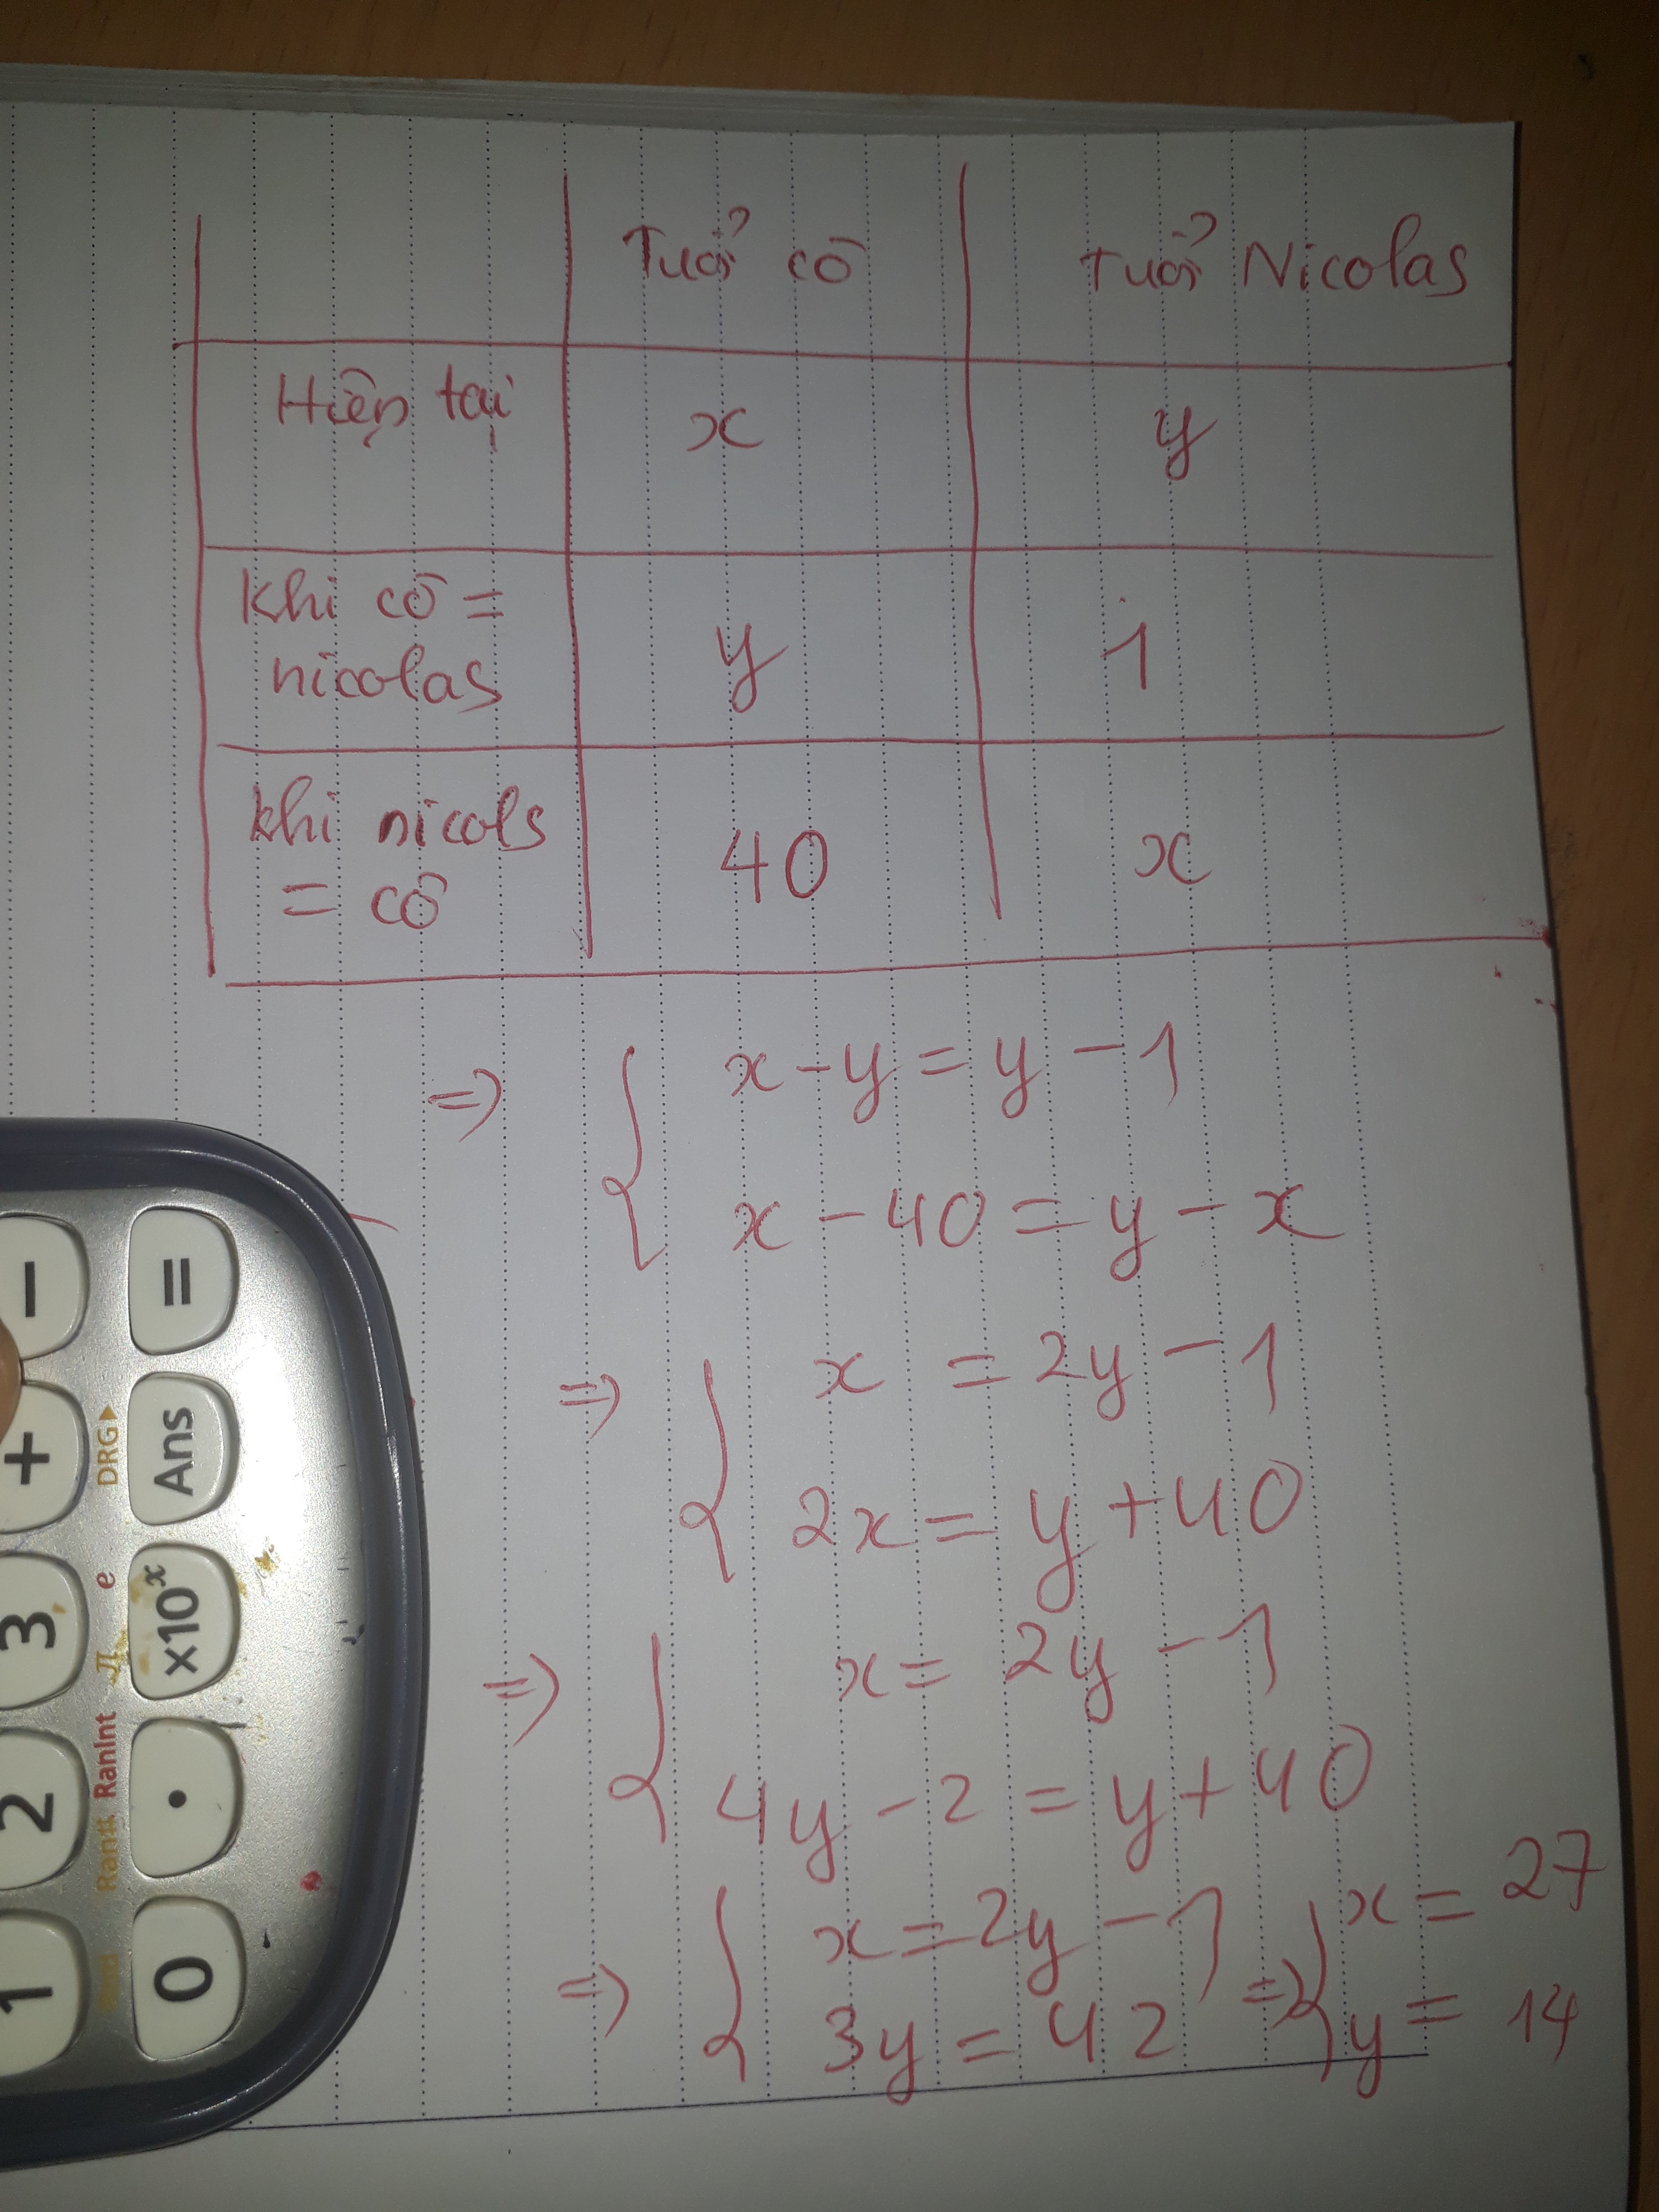 Tuổi cô Tuổi Nicolas
Hiện tại x y
khi cô =
nicolas y 1
khi nicols
= cô 40 x
=> { x - y = y - 1
x - 40 = y - x
=> { x = 2y - 1
2x = y + 40
=> { x = 2y - 1
4y - 2 = y + 40
=> { x = 2y - 1 => { x = 27
3y = 42 y = 14
− =
+ DRG▶ Ans
3 π e ×10ˣ
2 Ran# RanInt •
1 0